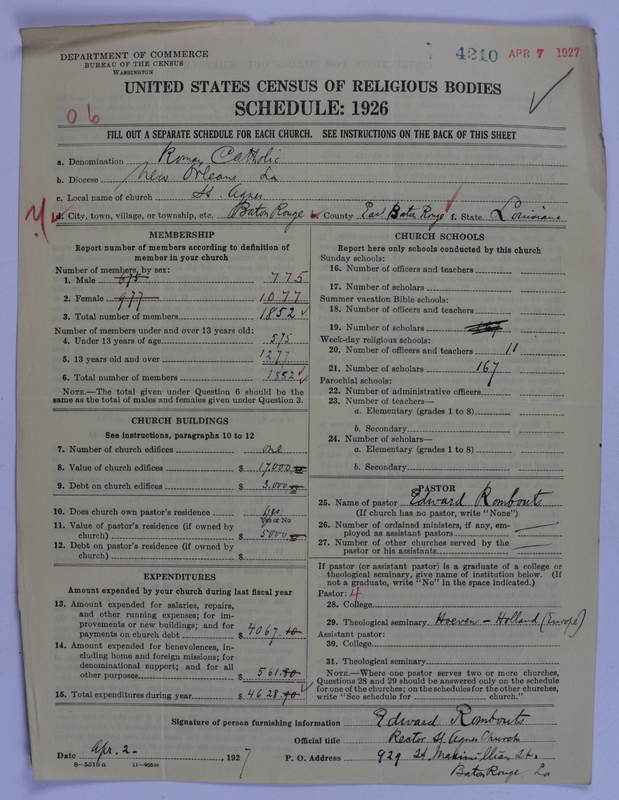 DEPARTMENT OF COMMERCE
BUREAU OF THE CENSUS
WASHINGTON
4210 APR 7 1927
UNITED STATES CENSUS OF RELIGIOUS BODIES
SCHEDULE: 1926
06
FILL OUT A SEPARATE SCHEDULE FOR EACH CHURCH. SEE INSTRUCTIONS ON THE BACK OF THIS SHEET
a. Denomination Roman Catholic
b. Diocese New Orleans La
c. Local name of church St. Agnes
d. City, town, village, or township, etc. Baton Rouge e. County East Baton Rouge f. State Louisiana
MEMBERSHIP
Report number of members according to definition of
member in your church
Number of members, by sex:
1. Male 675 775
2. Female 977 1077
3. Total number of members 1852
Number of members under and over 13 years old:
4. Under 13 years of age 575
5. 13 years old and over 1277
6. Total number of members 1852
NOTE.—The total given under Question 6 should be
same as the total of males and females given under Question 3.
CHURCH BUILDINGS
See instructions, paragraphs 10 to 12
7. Number of church edifices one
8. Value of church edifices $ 17,000
9. Debt on church edifices $ 3,000
10. Does church own pastor's residence Yes
Yes or No
11. Value of pastor's residence (if owned by
church) $ 5000
12. Debt on pastor's residence (if owned by
church) $
EXPENDITURES
Amount expended by your church during last fiscal year
13. Amount expended for salaries, repairs,
and other running expenses; for im-
provements or new buildings; and for
payments on church debt $ 4067.10
14. Amount expended for benevolences, in-
cluding home and foreign missions; for
denominational support; and for all
other purposes $ 561.80
15. Total expenditures during year $ 4628.90
CHURCH SCHOOLS
Report here only schools conducted by this church
Sunday schools:
16. Number of officers and teachers
17. Number of scholars
Summer vacation Bible schools:
18. Number of officers and teachers
19. Number of scholars
Week-day religious schools:
20. Number of officers and teachers 11
21. Number of scholars 167
Parochial schools:
22. Number of administrative officers
23. Number of teachers—
a. Elementary (grades 1 to 8)
b. Secondary
24. Number of scholars—
a. Elementary (grades 1 to 8)
b. Secondary
PASTOR
25. Name of pastor Edward Rombouts
(If church has no pastor, write "None")
26. Number of ordained ministers, if any, em-
ployed as assistant pastors
27. Number of other churches served by the
pastor or his assistants
If pastor (or assistant pastor) is a graduate of a college or
theological seminary, give name of institution below. (If
not a graduate, write "No" in the space indicated.)
Pastor: 4
28. College
29. Theological seminary Hoeven - Holland (Europe)
Assistant pastor:
30. College
31. Theological seminary
NOTE.—Where one pastor serves two or more churches,
Questions 28 and 29 should be answered only on the schedule
for one of the churches; on the schedules for the other churches,
write "See schedule for church."
Signature of person furnishing information Edward Rombouts
Official title Rector St. Agnes Church
Date Apr. 2- , 1927 P. O. Address 929 St. Maximillian St.
Baton Rouge La
8-5518a 11-9554